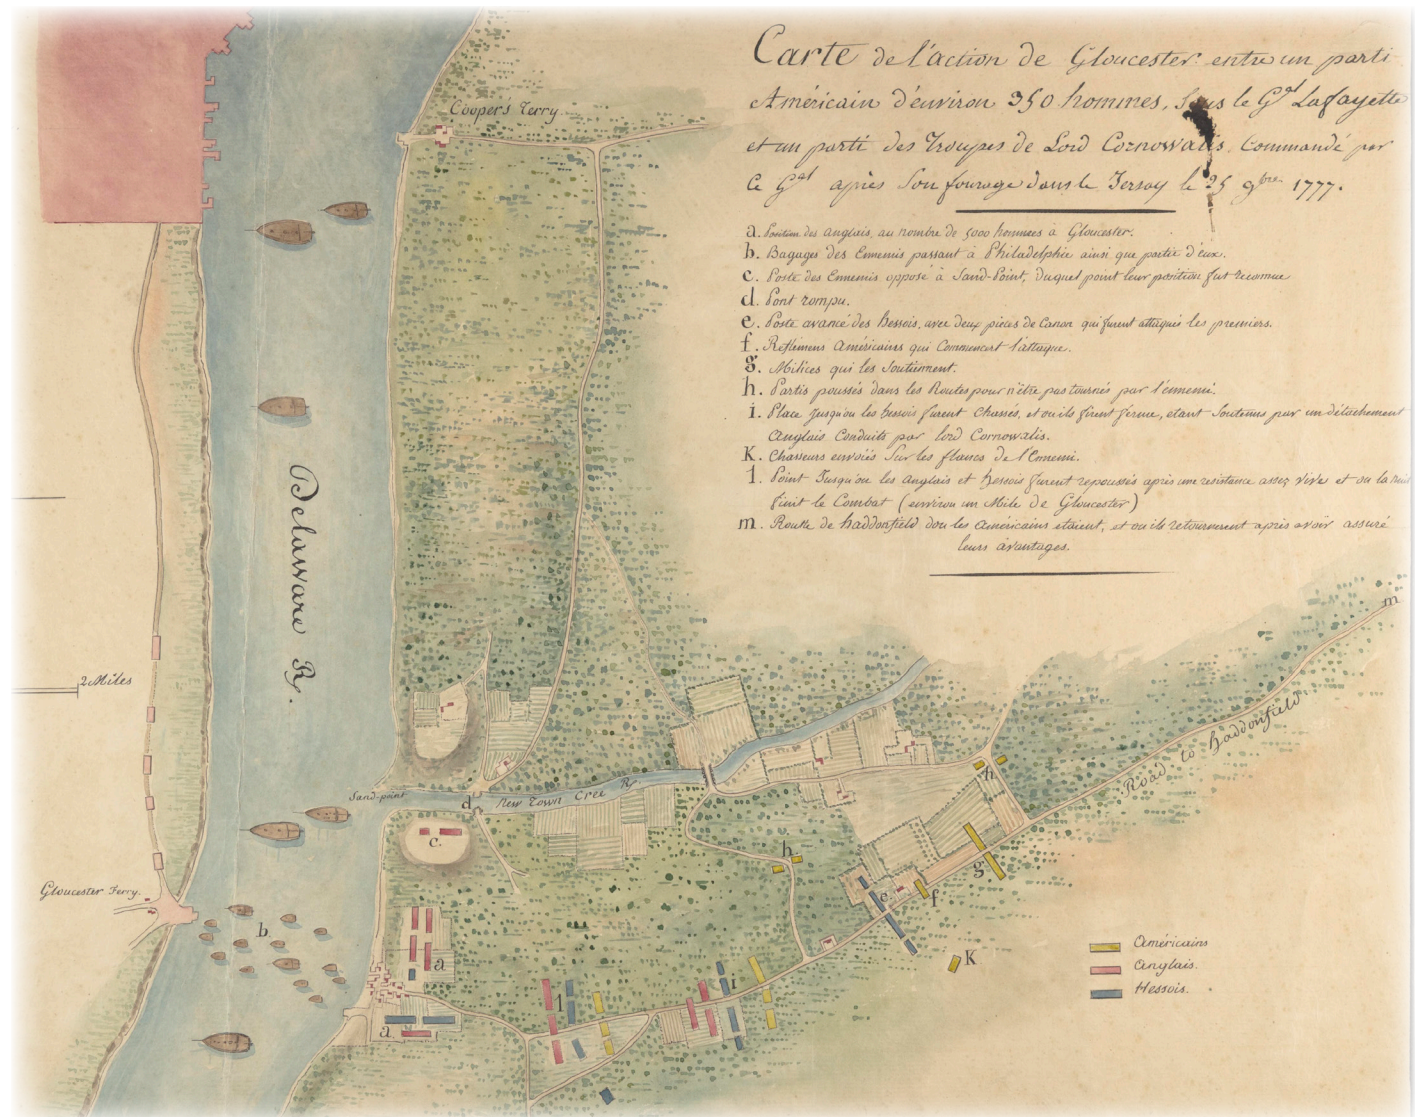 Carte de l'action de Gloucester entre un parti
Américain d'environ 350 hommes, Sous le Gal Lafayette
et un parti des Troupes de Lord Cornowalis, Commandé par
Ce Gal après Son fourage dans le Jersay le 25 9bre 1777.
a. Position des anglais, au nombre de 5000 hommes à Gloucester.
b. Bagages des Ennemis passant à Philadelphie ainsi que partie d'eux.
c. Poste des Ennemis opposé à Sand-Point, duquel point leur position fut reconnue
d. Pont rompu.
e. Poste avancé des hessois, avec deux pièces de Canon qui furent attaqués les premiers.
f. Refflemens Américains qui Commencert l'attaque.
g. Milices qui les Soutiennent.
h. Partis poussés dans les Routes pour n'être pas tournés par l'ennemi.
i. Place jusqu'ou les hessois furent Chassés, et ou ils firent ferme, etant Soutenus par un détachement
Anglais Conduits par lord Cornowalis.
K. Chasseurs envoiés Sur les flancs de l'Ennemi.
l. Point Jusqu'ou les anglais et hessois furent repoussés après une resistance assez vive et ou la nuit
finit le Combat (environ un Mile de Gloucester)
m. Route de haddonfield dou les américains etaient, et ou ils retournerent après avoir assuré
leurs avantages.
Cooper's Ferry
Delaware R.
2 Miles
m
Road to haddonfield
Sand-point
d
New Town Cree R.
h
c.
h
g
Gloucester Ferry.
e
f
b
K
a
i
l
a
Américains
Anglais.
Hessois.